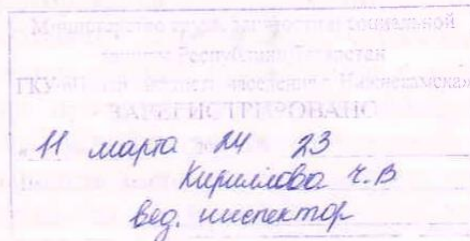 Министерство труда, занятости и социальной
защиты Республики Татарстан
ГКУ населения Нижнекамска»
ЗАРЕГИСТРИРОВАНО
« 11 марта 24 23
Кириллова Ч.В
вед. инспектор